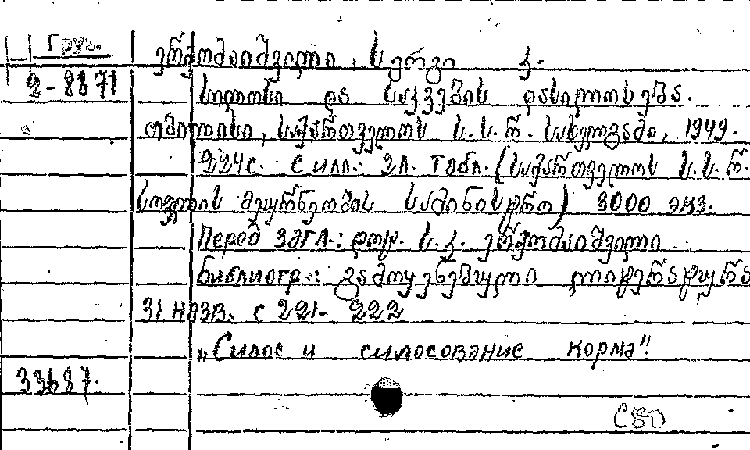 Груз.
2-8871
ერქომაიშვილი, სერგი კ.
სილოსი და საკვების დასილოსება.
თბილისი, საქართველოს ს.ს.რ. სახელგამი, 1949.
224с. с илл.: 2л. табл. (საქართველოს ს.ს.რ.
სოფლის მეურნეობის სამინისტრო) 3000 экз.
Перед загл.: დოც. ს.კ. ერქომაიშვილი
Библиогр.: გამოყენებული ლიტერატურა
31 назв. с 221-222
„Силос и силосование корма".
33687.